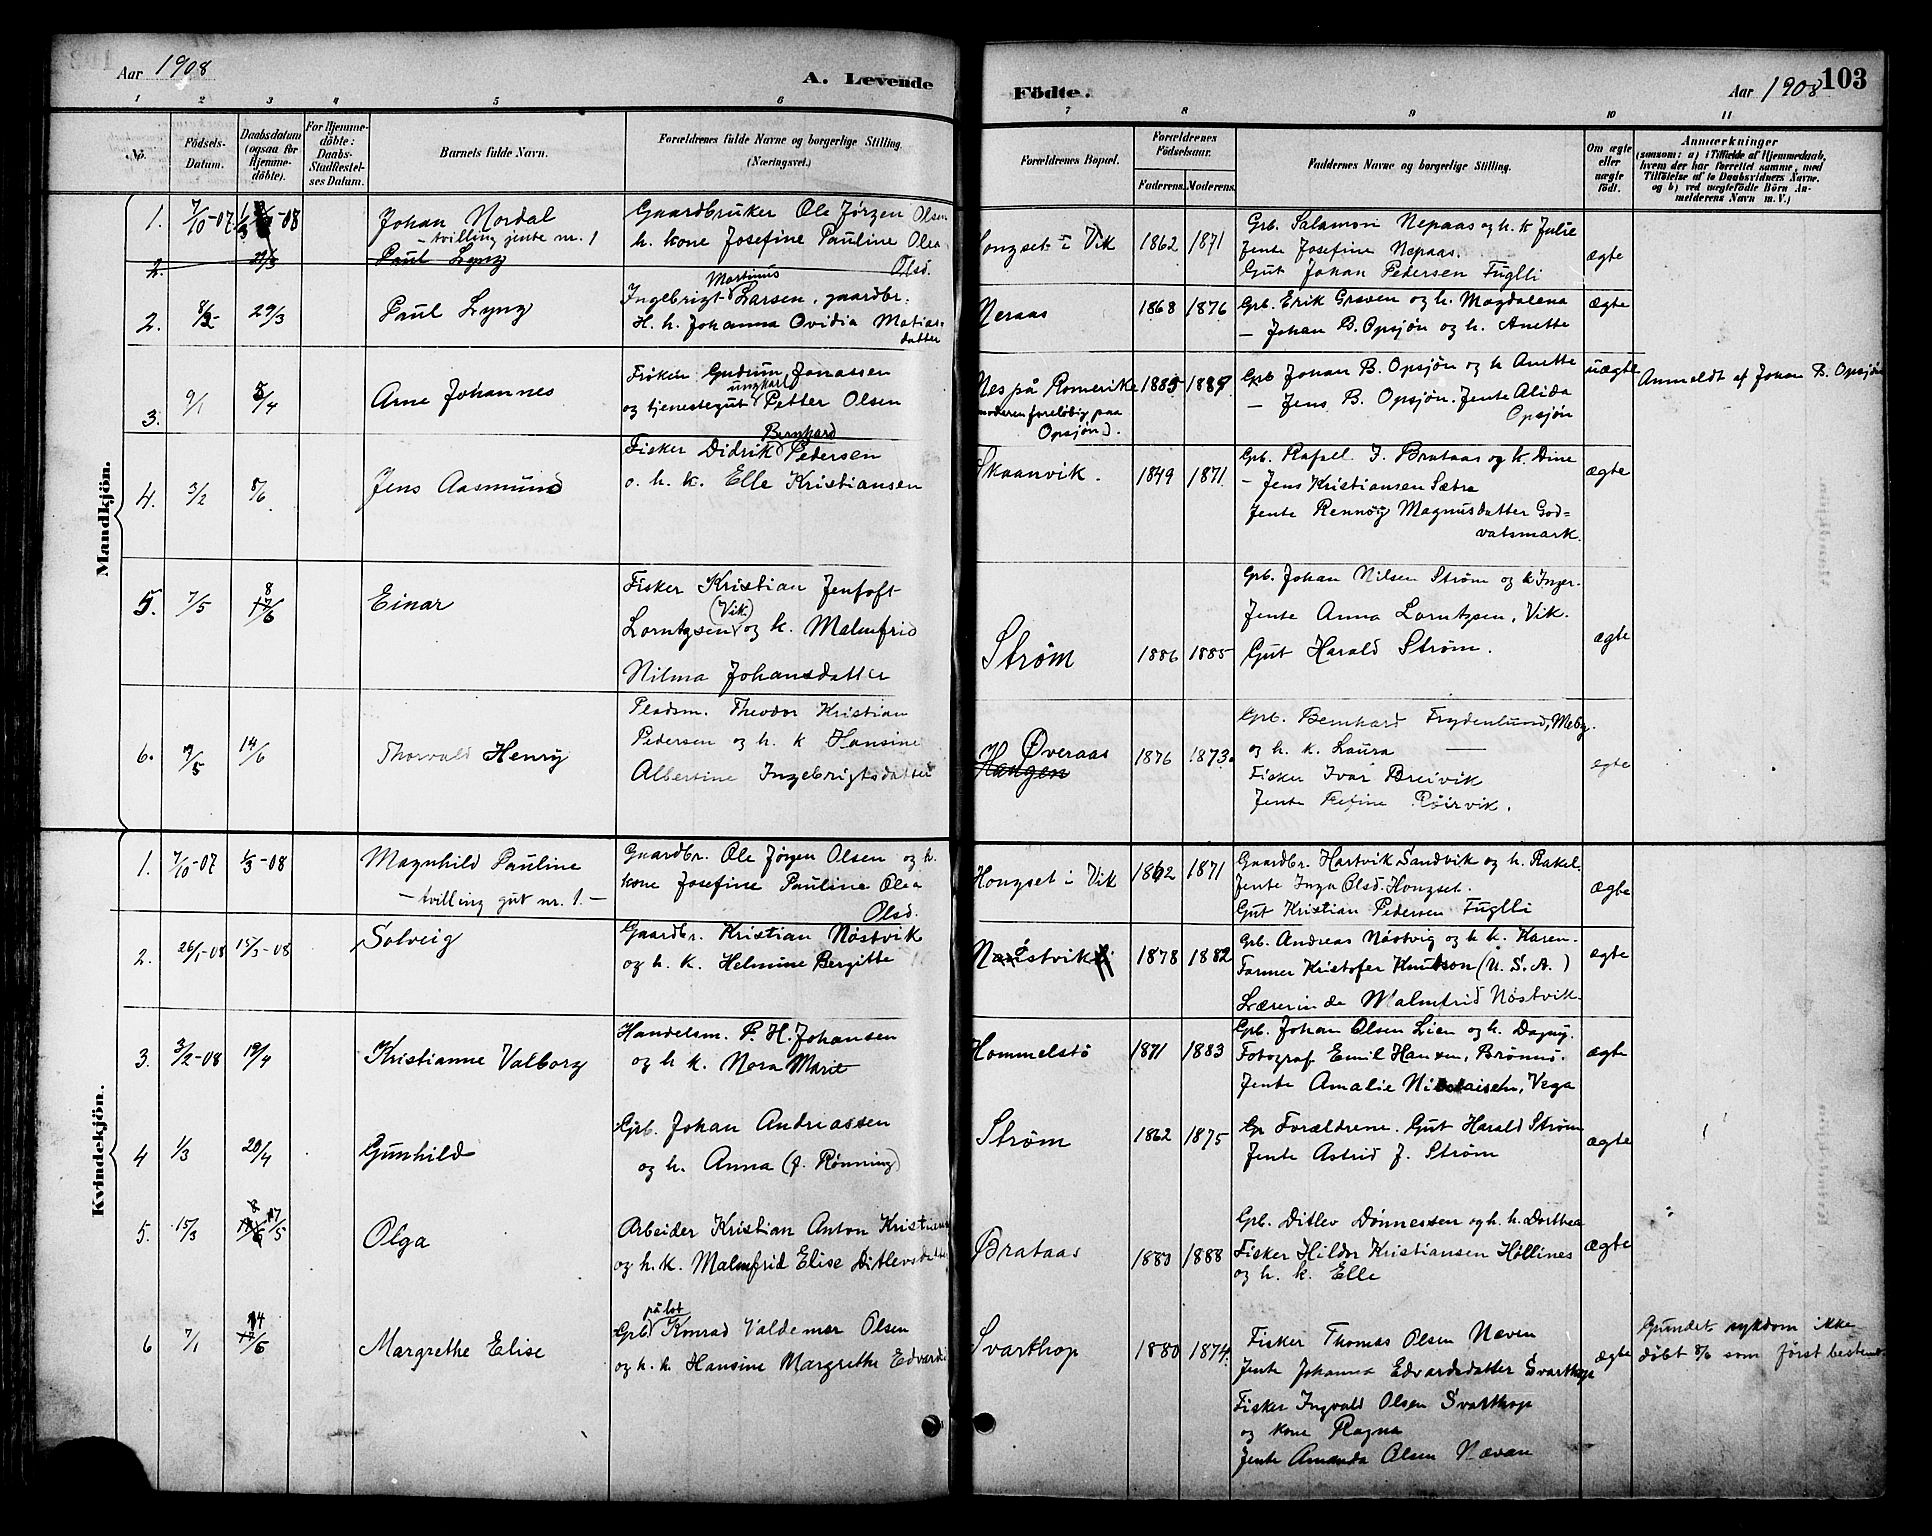 Aar 1908
A. Levende
Födte.
Aar 1908 103
1 2 3 4 5 6 7 8 9 10 11
No.
Födsels-Datum.
Daabsdatum (ogsaa for Hjemme-döbte).
For Hjemme-döbte: Daabs-Stadfestel-ses Datum.
Barnets fulde Navn.
Forældrenes fulde Navne og borgerlige Stilling. (Næringsvei.)
Forældrenes Bopæl.
Forældrenes Födselsaar.
Faderens. Moderens.
Faddernes Navne og borgerlige Stilling.
Om ægte eller uægte födt.
Anmærkninger
(saasom: a) i Tilfælde af Hjemmedaab,
hvem der har forrettet samme, med
Tilföielse af to Daabsvidners Navne.
og b) ved uægtefödte Börn An-
melderens Navn m. V.)
Mandkjön.
1. 7/10-07 1/3-08 Johan Nordal
- tvilling jente nr. 1
Gaardbruker Ole Jørgen Olsen
h. kone Josefine Pauline Olea
Olsd.
Hongset i Vik 1862 1871
Grb. Salamon Nepaas og h. k Julie
Jente Josefine Nepaas.
Gut Johan Pedersen Fuglli
ægte
2. 29/3 Paul Lyng
2. 8/2 29/3 Paul Lyng
Martinus
Ingebrigt Larsen, gaardbr.
H. h. Johanna Ovidia Matias-
datter
Neraas 1868 1876
Grb. Erik Graven og h. Magdalena
- Johan B. Opsjøn og h. Anette
ægte
3. 9/1 5/4 Arne Johannes
Frøken Gudrun Jonassen
ungkarl
og tjenestegut Petter Olsen
Nes på Romerike
(moderen foreløbig paa
Opsjøn).
1885 1889
Grb Johan B. Opsjøn og h Anette
- Jens B. Opsjøn. Jente Alida
Opsjøn
uægte
Anmeldt af Johan B. Opsjøn
4. 3/2 8/6 Jens Aasmund
Bernhard
Fisker Didrik Pedersen
o. h. k. Elle Kristiansen
Skaanvik. 1849 1871
Grb. Rafael J. Brataas og k. Dine
- Jens Kristiansen Sætra
Jente Rennøy Magnusdatter God-
vatsmark.
ægte
5. 7/5 8/6 Einar
Fisker Kristian Jentoft
(Vik)
Lorntzsen og k. Malmfrid
Nilma Johansdatter
Strøm 1886 1885
Grb. Johan Nilsen Strøm og k Inger.
Jente Anna Lorntzsen, Vik.
Gut Harald Strøm.
ægte
6. 9/5 14/6 Thorvald Henry
Pladsm. Theodor Kristian
Pedersen og h. k Hansine
Albertine Ingebrigtsdatter
Øveraas
Haugen
1876 1873.
Grb. Bernhard Frydenlund, Meby.
og h. k. Laura —
Fisker Ivar Breivik
Jente Refine Röirvik.
ægte
Kvindekjön.
1. 7/10-07 1/3-08 Magnhild Pauline
- tvilling gut nr. 1. -
Gaardbr. Ole Jørgen Olsen og h.
kone Josefine Pauline Olea
Olsd.
Hongset i Vik 1862 1871
Gaardbr. Hartvik Sandvik og h. Rakel.
Jente Inga Olsd. Hongset.
Gut Kristian Pedersen Fuglli
ægte
2. 26/1-08 15/3-08 Solveig
Gaardbr. Kristian Nöstvik
og h. k. Helmine Bergitte
Nöstvik 1878 1882
Grb. Andreas Nöstvig og h k. Karen.
Farmer Kristofer Knutson (U. S. A.)
Lærerinde Malmfrid Nöstvik.
ægte
3. 3/2-08 19/4 Kristianne Valborg
Handelsm. P. H. Johansen
og h k. Nora Marie
Hommelstö 1871 1883
Grb. Johan Olsen Lien og h. Dagny.
Fotograf Emil Hansen, Brönnö.
Jente Amalie Nikolaisen, Vega
ægte
4 1/3 20/4 Gunhild
Grb. Johan Andriassen
og h. Anna (f. Rønning)
Strøm 1862 1875
Gr Forældrene. Gut Harald Strøm
Jente Astrid J. Strøm
ægte
5. 15/3 17/5 Olga
Arbeider Kristian Anton Kristiens
og h.k. Malmfrid Elise Ditlevsdatter
Brataas 1880 1888
Grb. Ditlev Dönnessen og h. k. Dorthea
Fisker Hildor Kristiansen Höllines
og h. k. Elle
ægte
6 7/1 14/6 Margrethe Elise
på lot
Grb Konrad Valdemar Olsen
og h. k Hansine Margrethe Edvardsd
Svarthop 1880 1874.
Fisker Thomas Olsen Næven
Jente Johanna Edvardsdatter Svarthop
Fisker Ingvald Olsen Svarthop
og kone Ragna
Jente Amanda Olsen Nævan
ægte
Grundet sykdom ikke
döbt 8/6 som först bestemt.